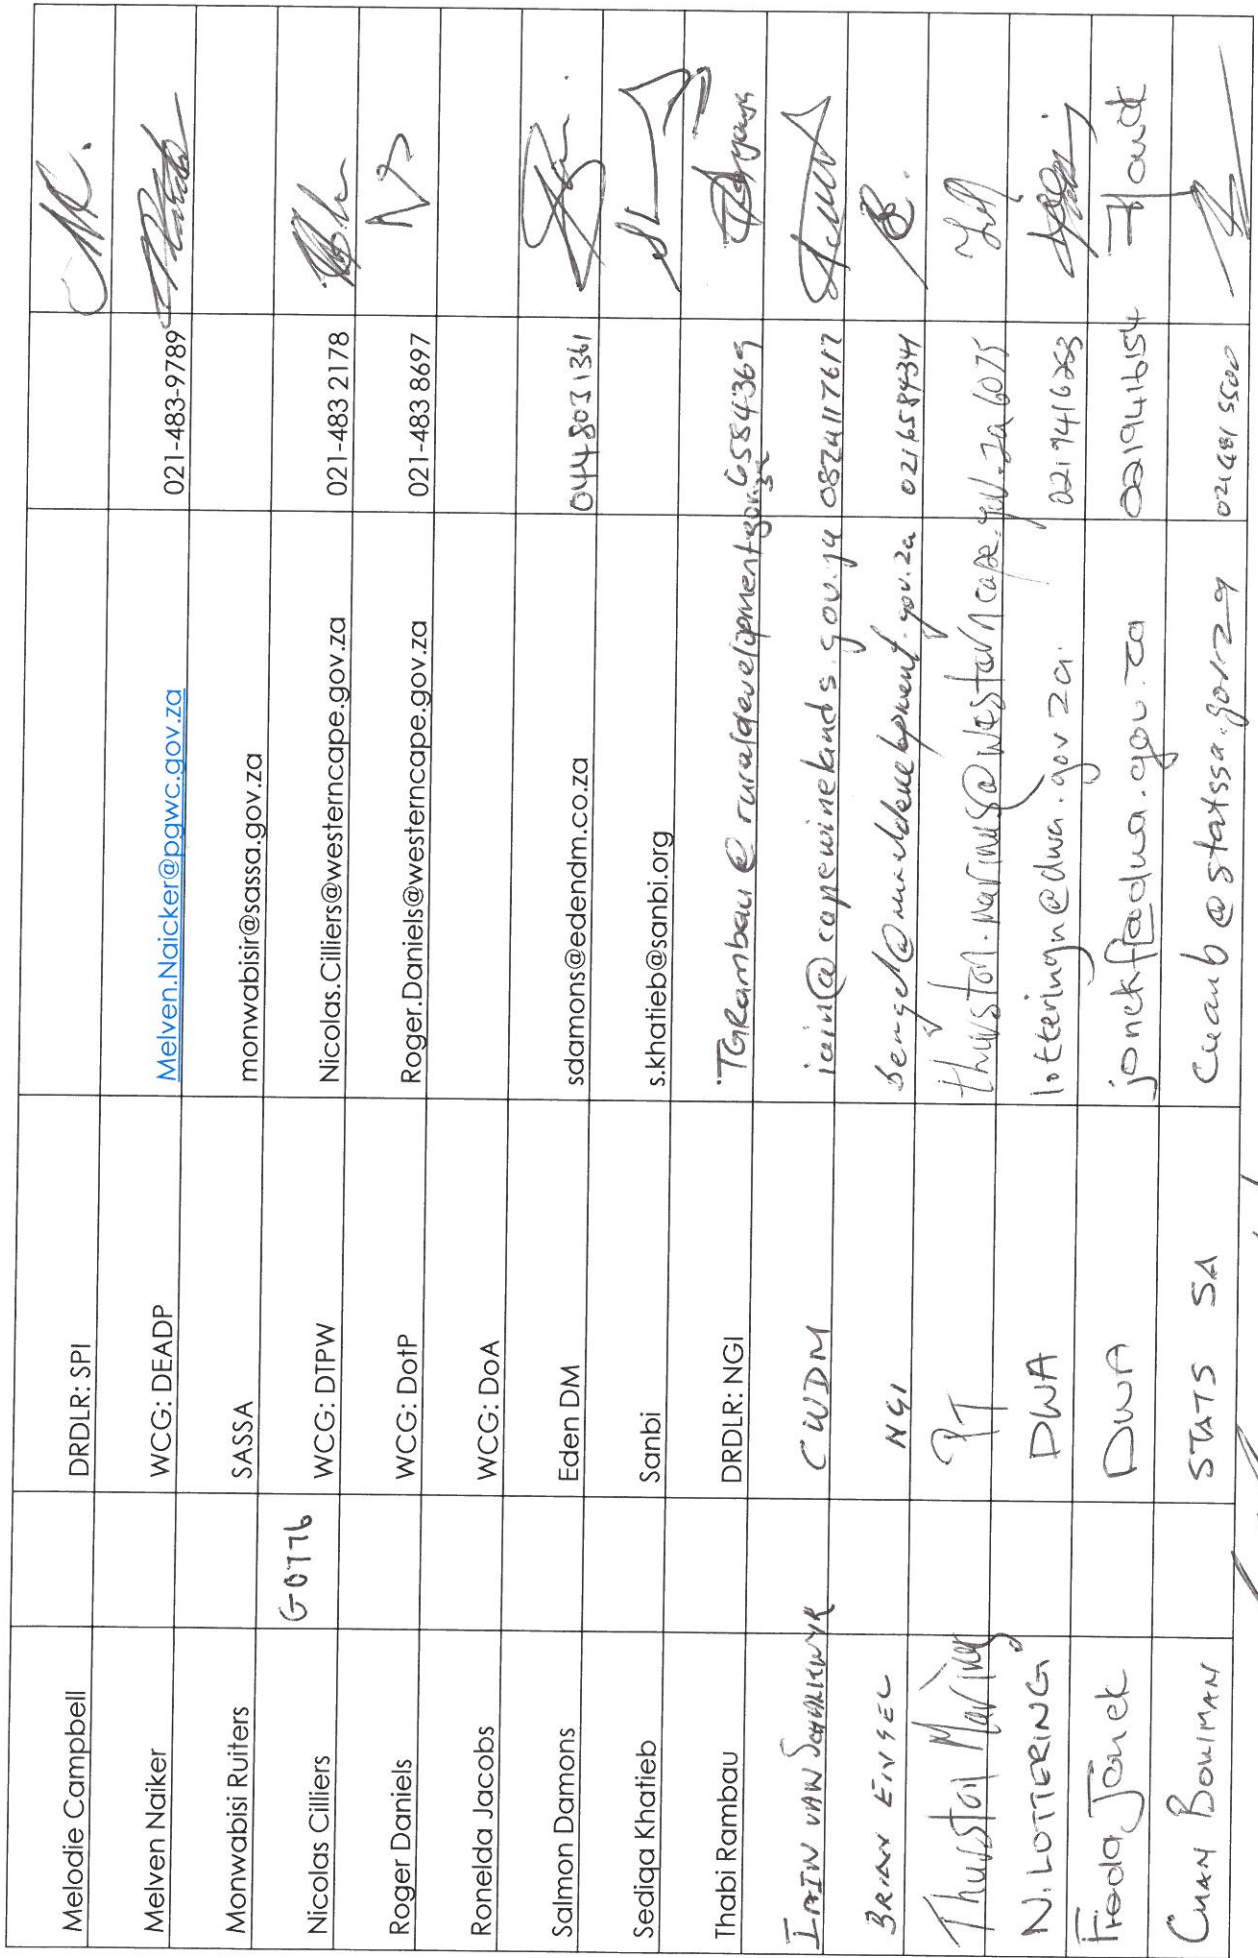 Melodie Campbell DRDLR: SPI
Melven Naiker WCG: DEADP Melven.Naicker@pgwc.gov.za 021-483-9789
Monwabisi Ruiters SASSA monwabisir@sassa.gov.za
Nicolas Cilliers GOTTB WCG: DTPW Nicolas.Cilliers@westerncape.gov.za 021-483 2178
Roger Daniels WCG: DotP Roger.Daniels@westerncape.gov.za 021-483 8697
Ronelda Jacobs WCG: DoA
Salmon Damons Eden DM sdamons@edendm.co.za 0448031361
Sediqa Khatieb Sanbi s.khatieb@sanbi.org
Thabi Rambau DRDLR: NGI TGRambau@ruraldevelopment.gov.za 6584369
IAIN VAN SCHALKWYK CWDM iain@capewinelands.gov.za 0824117617
BRIAN ENGEL NGI 0216584341
Thurston Marinus PT thurston.marinus@westerncape.gov.za 6075
N. LOTTERING DWA lotteringn@dwa.gov.za. 0219416263
Freda Jonck DWA jonckf@dwa.gov.za 0219416154
STATS SA @statssa.gov.za